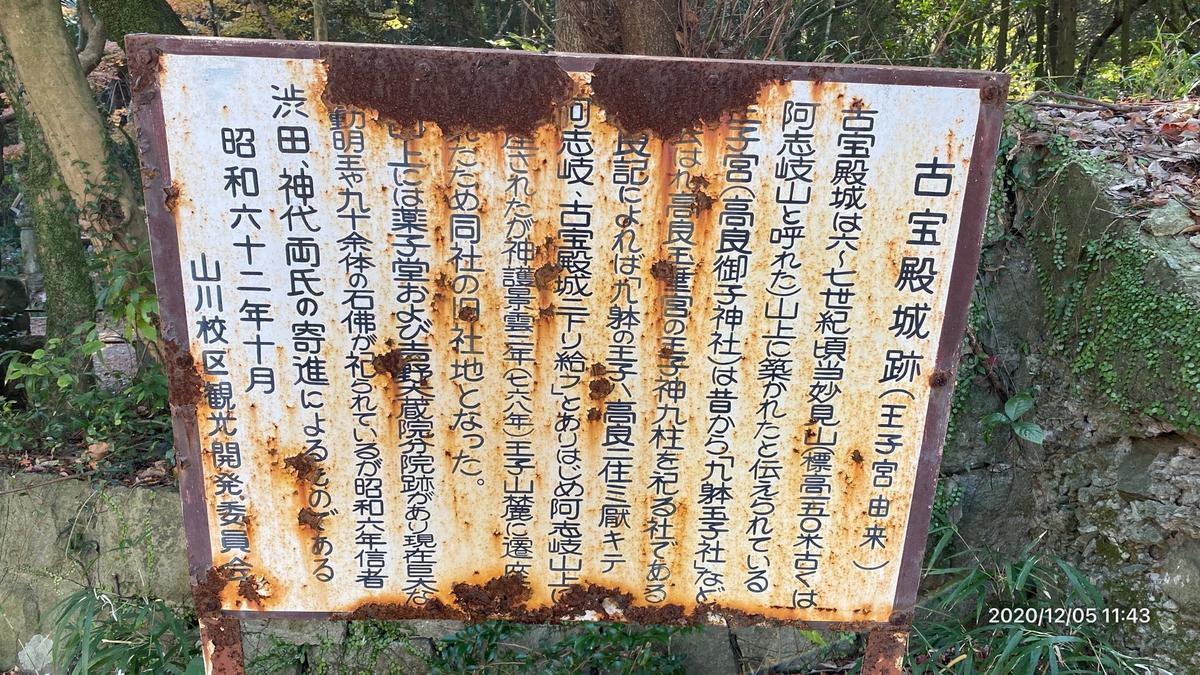 古宝殿城跡(王子宮由来)
古宝殿城は六～七世紀頃当妙見山(標高五〇米古くは
阿志岐山と呼れた)山上に築かれたと伝えられている
王子宮(高良御子神社)は昔から「九躰王子社」など
云はれ高良玉垂宮の王子神九柱を祀る社である
良記によれば「九躰の王子ハ、高良ニ住ミ厭キテ
阿志岐、古宝殿城ニ下り給フ」とありはじめ阿志岐山上に
生されたが神護景雲二年(七六八年)王子山麓に遷座
ため同社の旧社地となった。
山上には薬子堂および吉野大蔵院分院跡があり現在大な
動明王や九十余体の石佛が祀られているが昭和六年信者
渋田、神代両氏の寄進によるものである
昭和六十二年十月
山川校区観光開発委員会
2020/12/05 11:43